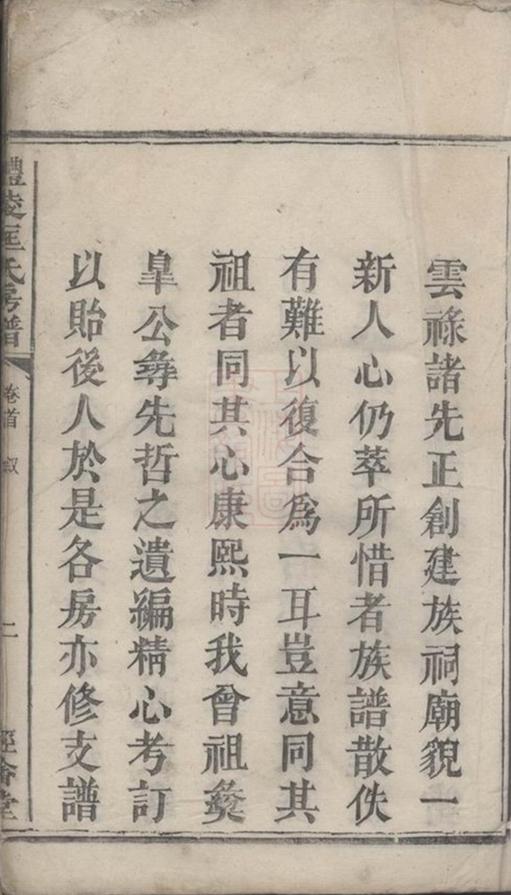 雲祿諸先正創建族祠廟貌一
新人心仍萃所惜者族譜散佚
有難以復合爲一耳豈意同其
祖者同其心康熙時我曾祖發
皐公尋先哲之遺編精心考訂
以貽後人於是各房亦修支譜
醴陵匡氏房譜
卷首 叙
二
經畬堂